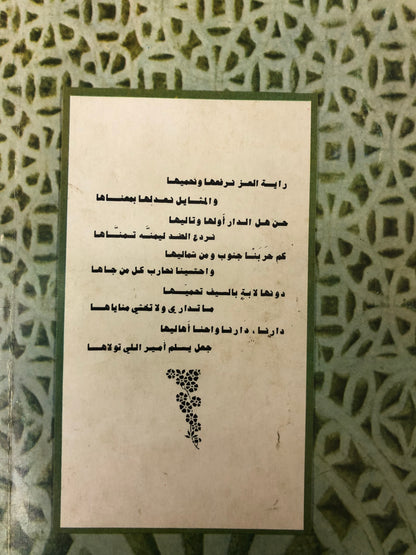 راية العز نرفعها ونحميها
والمتايل نعدلها بمعناها
حن هل الدار أولها وتاليها
نردع الضد ليمنّه تمنّاها
كم حربنا جنوب ومن شماليها
واحتمينا نحارب كل من جاها
دونها لابةٍ بالسيف تحميها
ما تداري ولا تخشي مناياها
دارنا، دارنا واحنا أهاليها
جعل يسلم أمير اللي تولاها